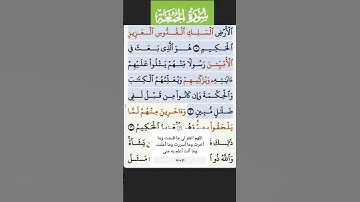 سورة الجمعة
ٱلْأَرْضِ ٱلْمَلِكِ ٱلْقُدُّوسِ ٱلْعَزِيزِ
ٱلْحَكِيمِ ۝ هُوَ ٱلَّذِى بَعَثَ فِى
ٱلْأُمِّيِّـۧنَ رَسُولًا مِّنْهُمْ يَتْلُوا۟ عَلَيْهِمْ
ءَايَـٰتِهِۦ وَيُزَكِّيهِمْ وَيُعَلِّمُهُمُ ٱلْكِتَـٰبَ
وَٱلْحِكْمَةَ وَإِن كَانُوا۟ مِن قَبْلُ لَفِى
ضَلَـٰلٍ مُّبِينٍ ۝ وَءَاخَرِينَ مِنْهُمْ لَمَّا
يَلْحَقُوا۟ ٱلْحَكِيمُ
اللهم اغفر لي ما قدمت وما
أخرت وما أسررت وما أعلنت
وما أنت أعلم به مني
ذَٰلِكَ يَشَآءُ
وَٱللَّهُ ذُو مَثَلُ